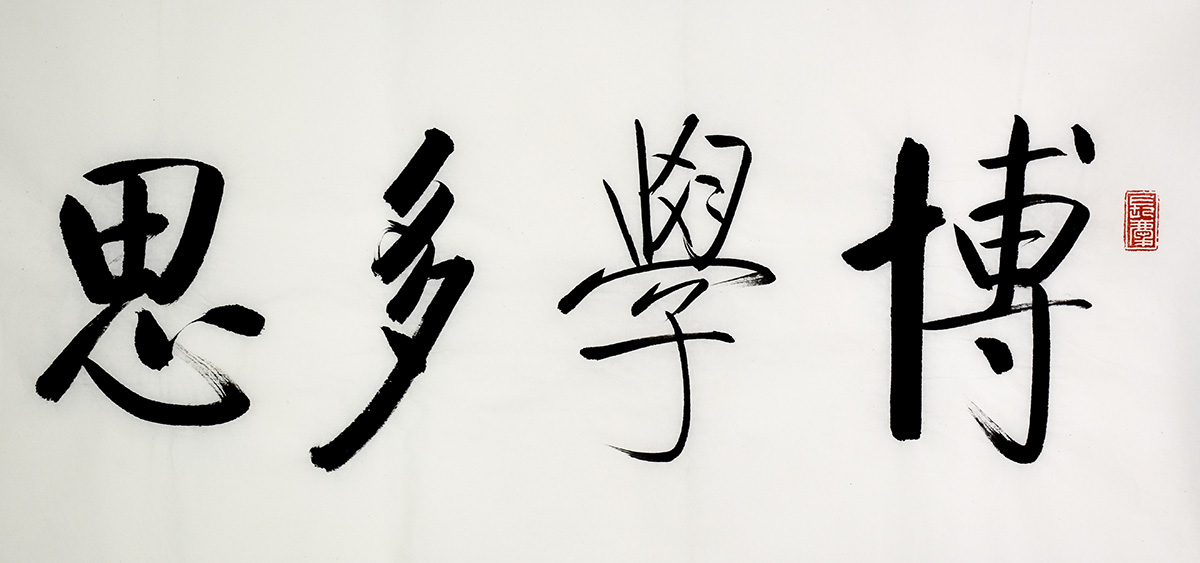 博學多思